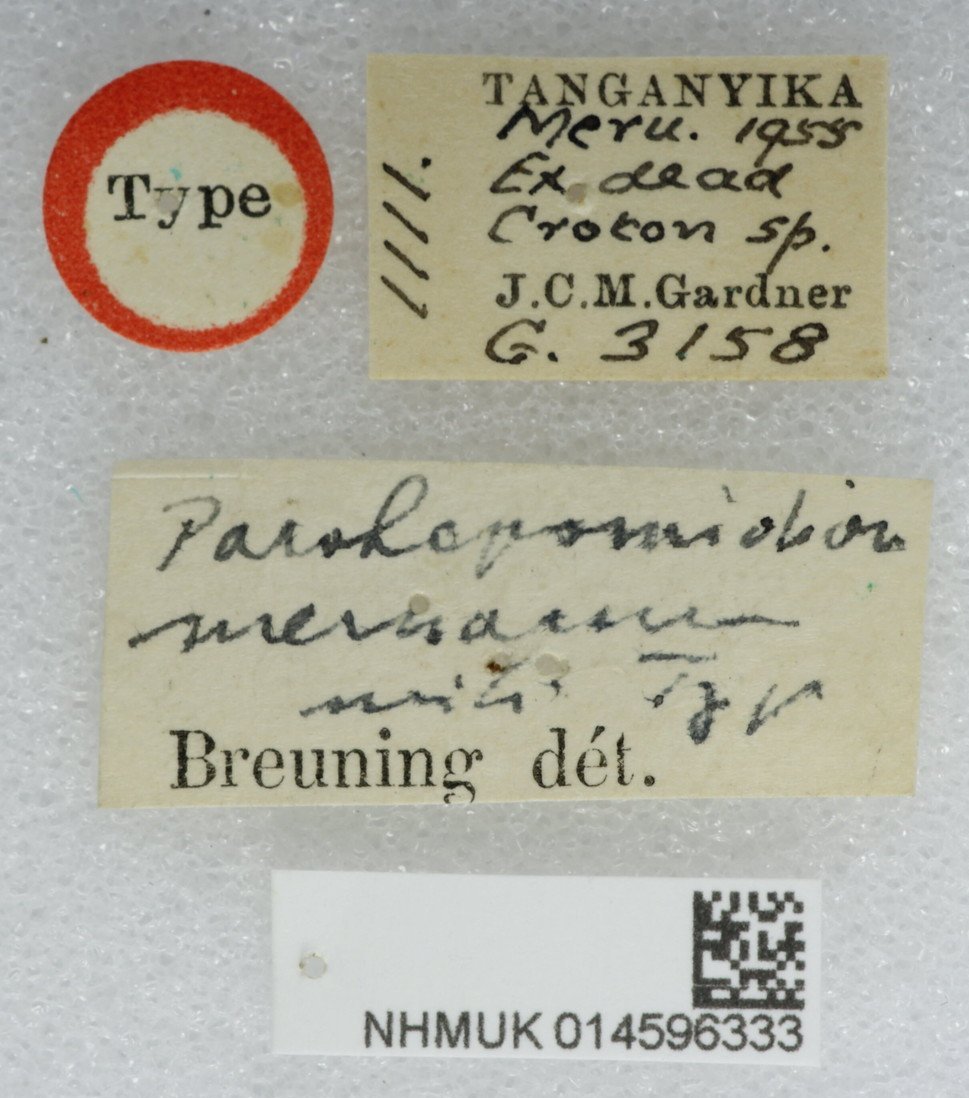 Type
TANGANYIKA
Meru. 1955
Ex dead
Croton sp.
J.C.M.Gardner
G. 3158
1111.
Parohepomidion
meruanum
mihi Typ
Breuning dét.
NHMUK 014596333